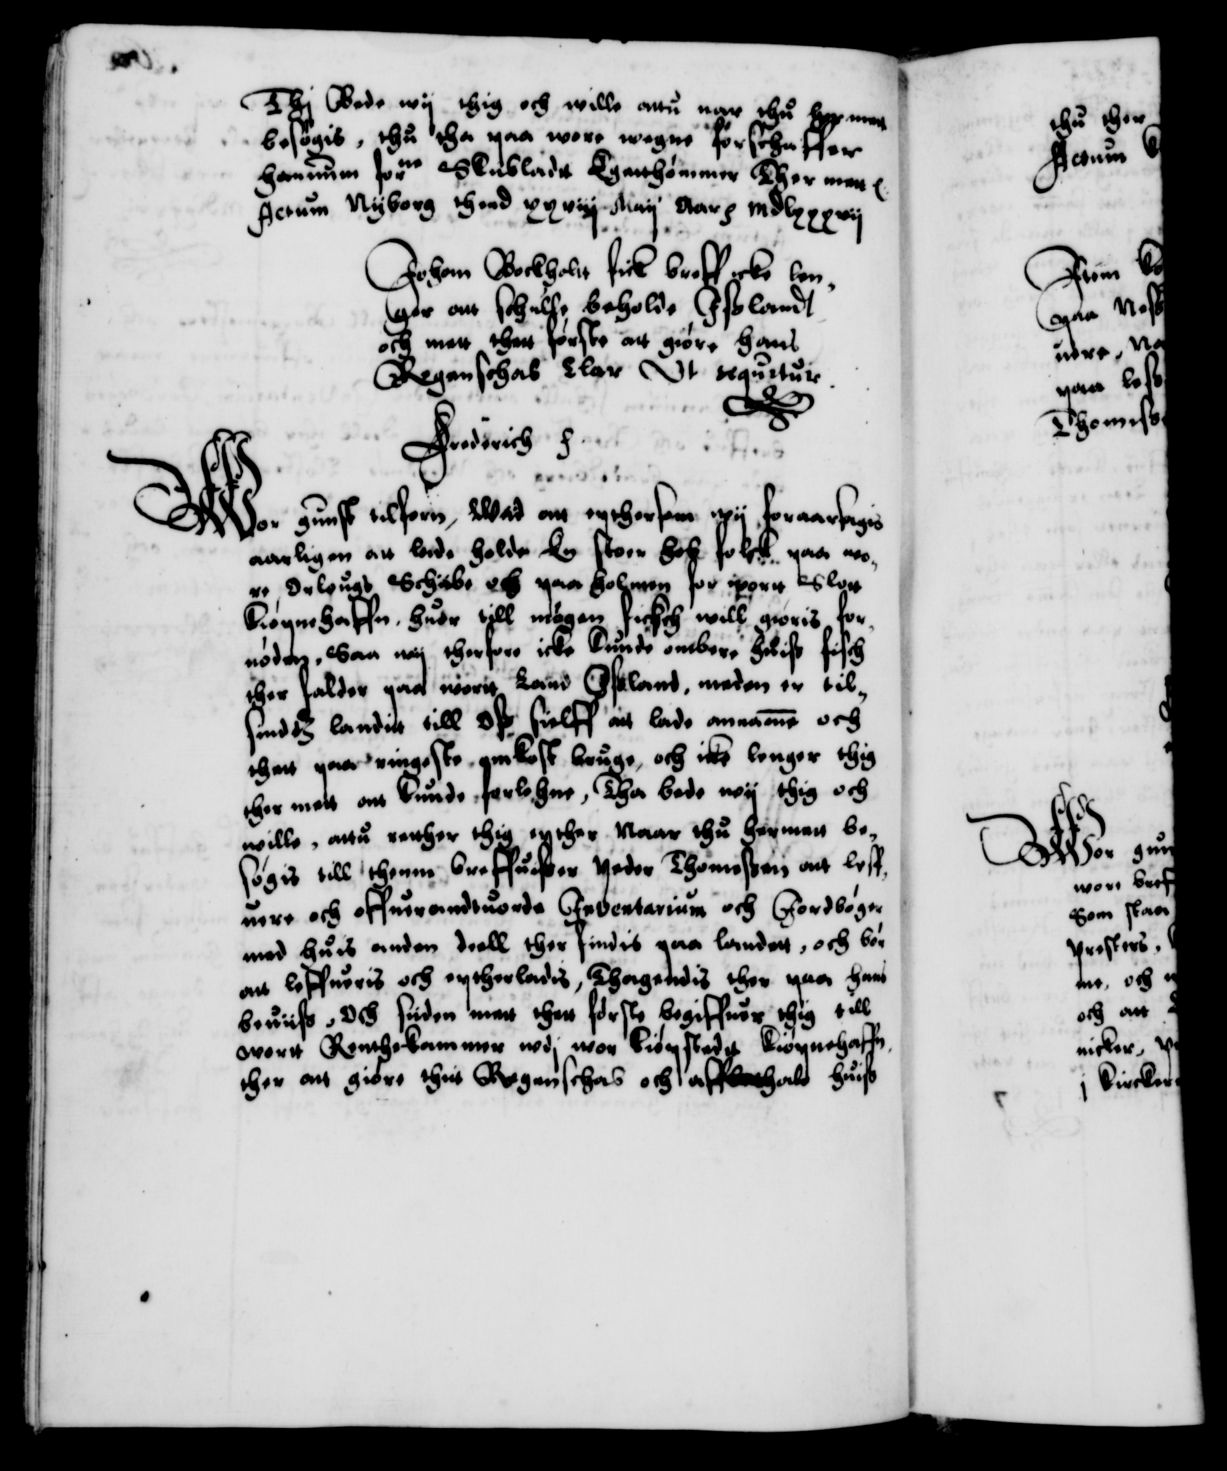 Thj Bede wij thig och wille attu nar thu her mett
besøgis, thu tha paa wore wegne forschaffer
hannum forne Skibladt Egetthømmer Ther mett
Actum Nyborg thend xxviij Maij Aar mdlxxxvij
Johan Bockholt fick breff icke len,
ger att schulle beholde Jsslandt
och mett thett første att giøre hans
Regenschab klar Vt sequitur
Frederich
Wor gunst tilforn, Wiid att epthersom wij foraarsagis
aarligen att lade holde En stoer hob folck paa wo,
re Orlougs Schibe och paa holmen for wort Slott
Kiøpnehaffn, huor till møgen fisch will giøris for,
nøden, Saa wij therfore icke kunde ombere huis fisch
ther falder paa wortt Land Jsland, meden er til,
sindz landitt till Oss sielff att lade annamme och
thett paa ringeste omkost bruge, och icke lenger thig
ther mett att kunde forlehne, Tha bede wij thig och
wille, attu retther thig epther Naar thu hermett be,
søgis till thenne breffuiser Peder Thomessen att leff,
uere och offuerandtuorde Inventarium och Jordbøger
med huis anden deell ther findis paa landett, och bør
att leffueris och eptherladis, Thagendis ther paa hans
beuiis, Och siden mett thett første begiffuer thig till
wortt Renthekammer wdj wor Kiøpstedt Kiøpnehaffn,
ther att giøre thit Regenschab och aff thale huis
thu ther
Actum
Item
paa Ness
uere, Na
paa less
Thomiss
Wor gun
wore breff
Som staa
prester,
me, och
och att
nicker,
j kircker